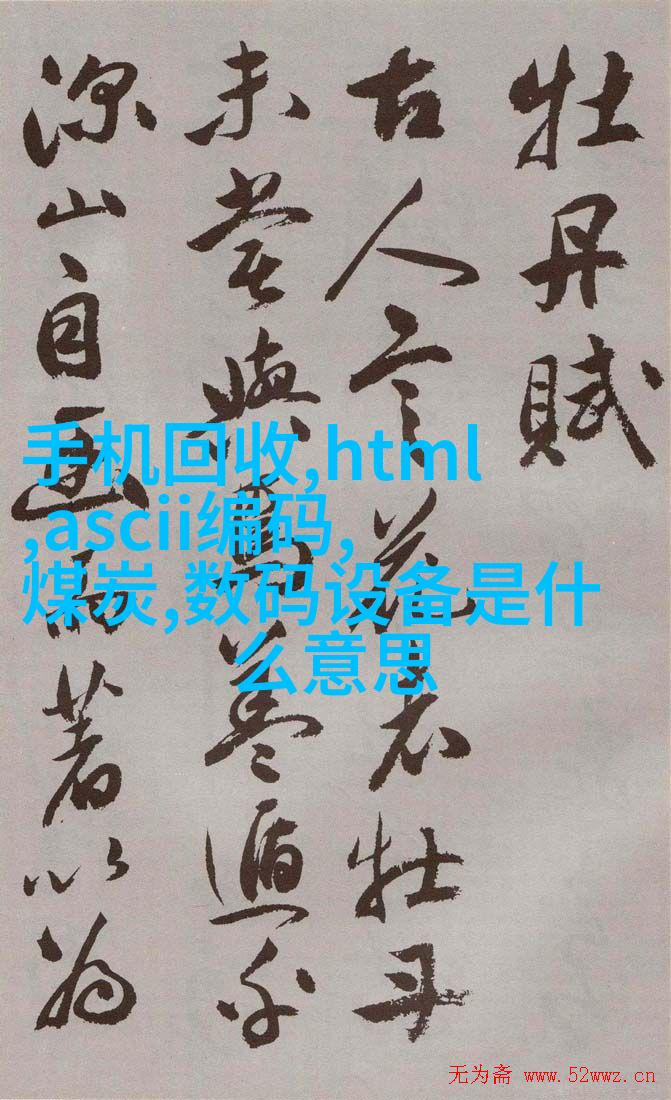 牡丹賦
古人言花者牡丹
未嘗與焉蓋遁乎
深山自幽而著以為
手机回收,html
,ascii编码,
煤炭,数码设备是什
么意思
无为斋 www.52wwz.cn